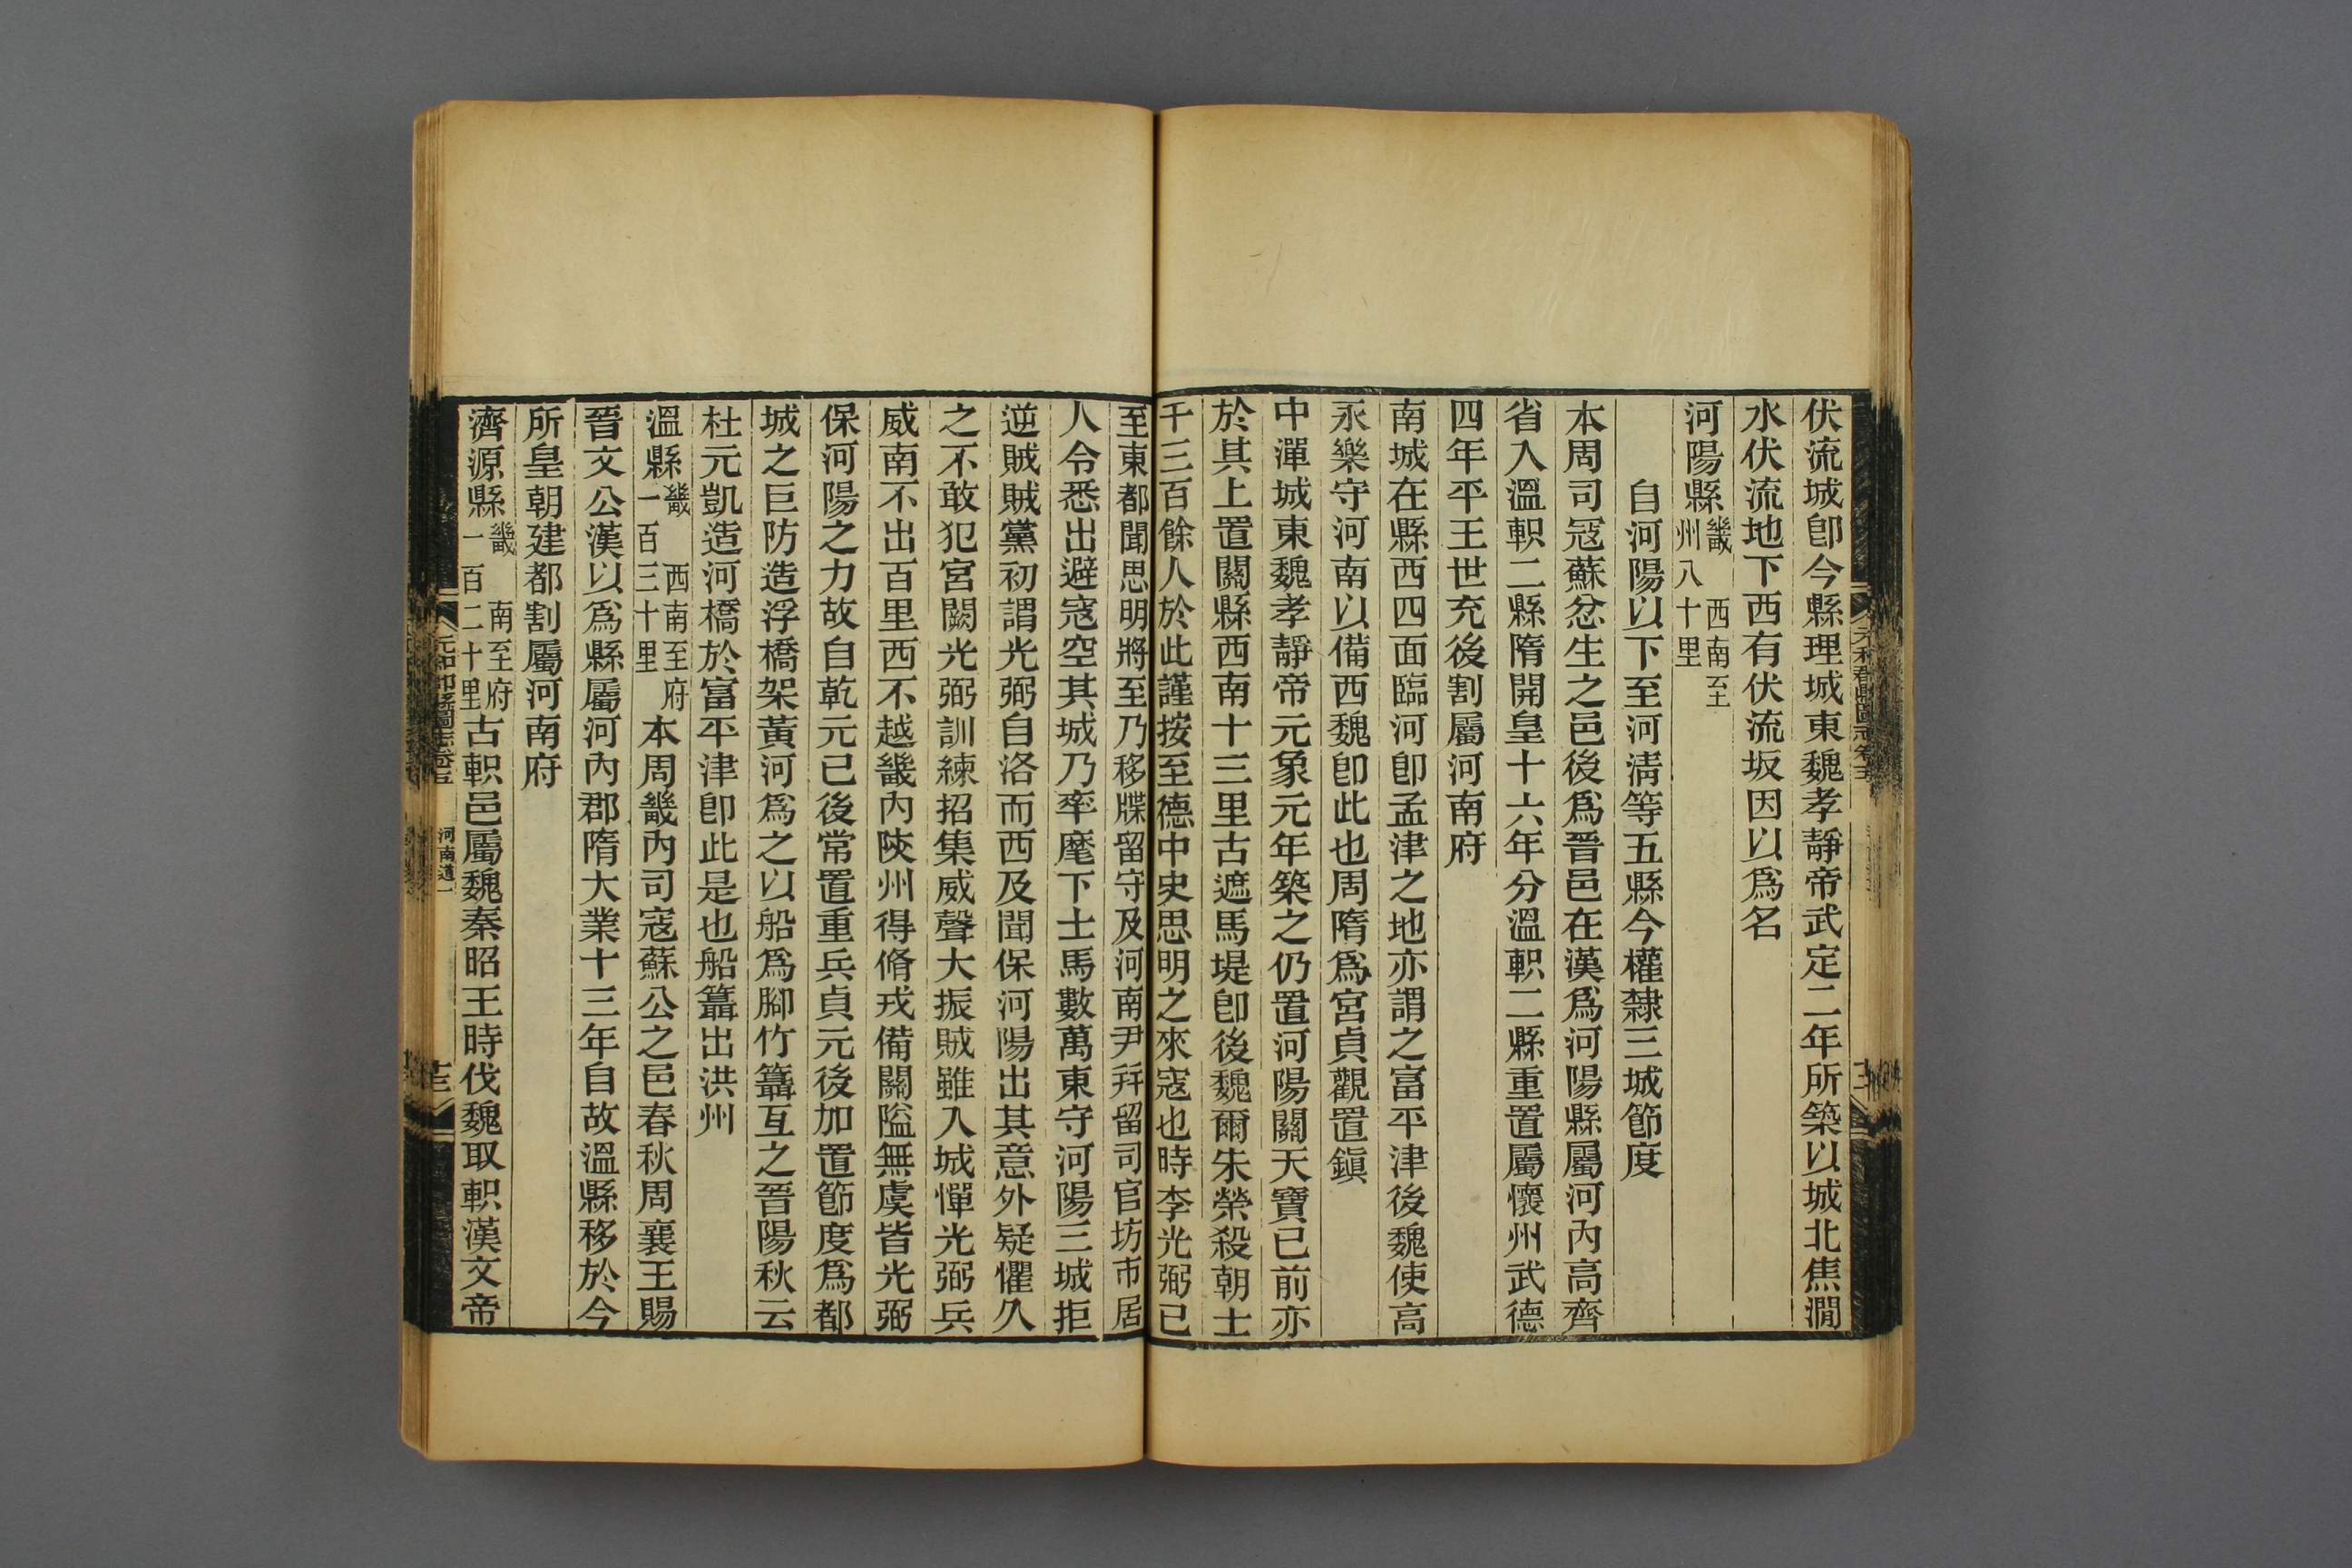 伏流城卽今縣理城東魏孝靜帝武定二年所築以城北焦澗
水伏流地下西有伏流坂因以爲名
河陽縣畿 西南至州八十里
自河陽以下至河淸等五縣今權隸三城節度
本周司寇蘇忿生之邑後爲晉邑在漢爲河陽縣屬河內高齊
省入溫軹二縣隋開皇十六年分溫軹二縣重置屬懷州武德
四年平王世充後割屬河南府
南城在縣西四面臨河卽孟津之地亦謂之富平津後魏使高
永樂守河南以備西魏卽此也周隋爲宮貞觀置鎭
中潬城東魏孝靜帝元象元年築之仍置河陽關天寶已前亦
於其上置關縣西南十三里古遮馬堤卽後魏爾朱榮殺朝士
千三百餘人於此謹按至德中史思明之來寇也時李光弼已
至東都聞思明將至乃移牒留守及河南尹幷留司官坊市居
人令悉出避寇空其城乃率麾下士馬數萬東守河陽三城拒
逆賊賊黨初謂光弼自洛而西及聞保河陽出其意外疑懼久
之不敢犯宮闕光弼訓練招集威聲大振賊雖入城憚光弼兵
威南不出百里西不越畿內陝州得脩戎備關隘無虞皆光弼
保河陽之力故自乾元已後常置重兵貞元後加置節度爲都
城之巨防造浮橋架黃河爲之以船爲腳竹籊互之晉陽秋云
杜元凱造河橋於富平津卽此是也船籊出洪州
溫縣畿 西南至府一百三十里本周畿內司寇蘇公之邑春秋周襄王賜
晉文公漢以爲縣屬河內郡隋大業十三年自故溫縣移於今
所皇朝建都割屬河南府
濟源縣畿 南至府一百二十里古軹邑屬魏秦昭王時伐魏取軹漢文帝
元和郡縣圖志卷五 河南道一
十三